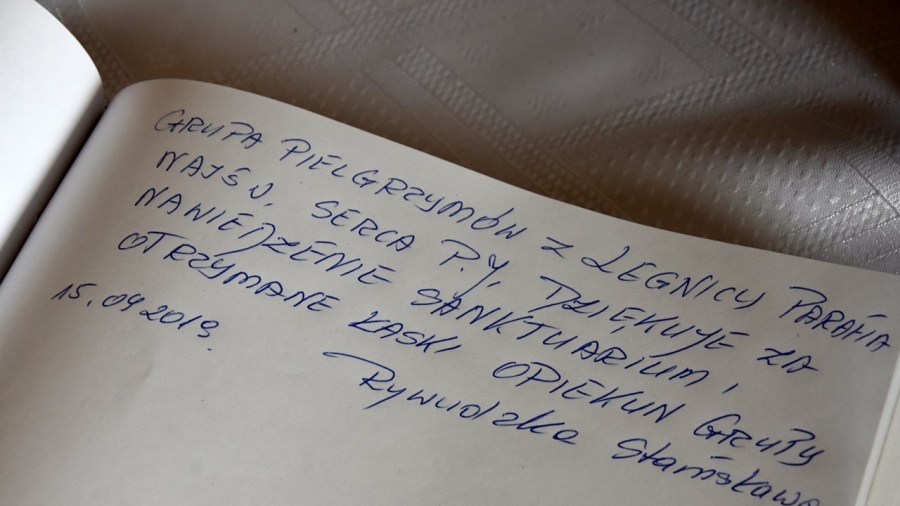 GRUPA PIELGRZYMÓW Z LEGNICY PARAFIA
NAJŚW. SERCA P.J. DZIĘKUJE ZA
NAWIEDZENIE SANKTUARIUM,
OTRZYMANE ŁASKI OPIEKUN GRUPY
15.09.2019. Stanisława